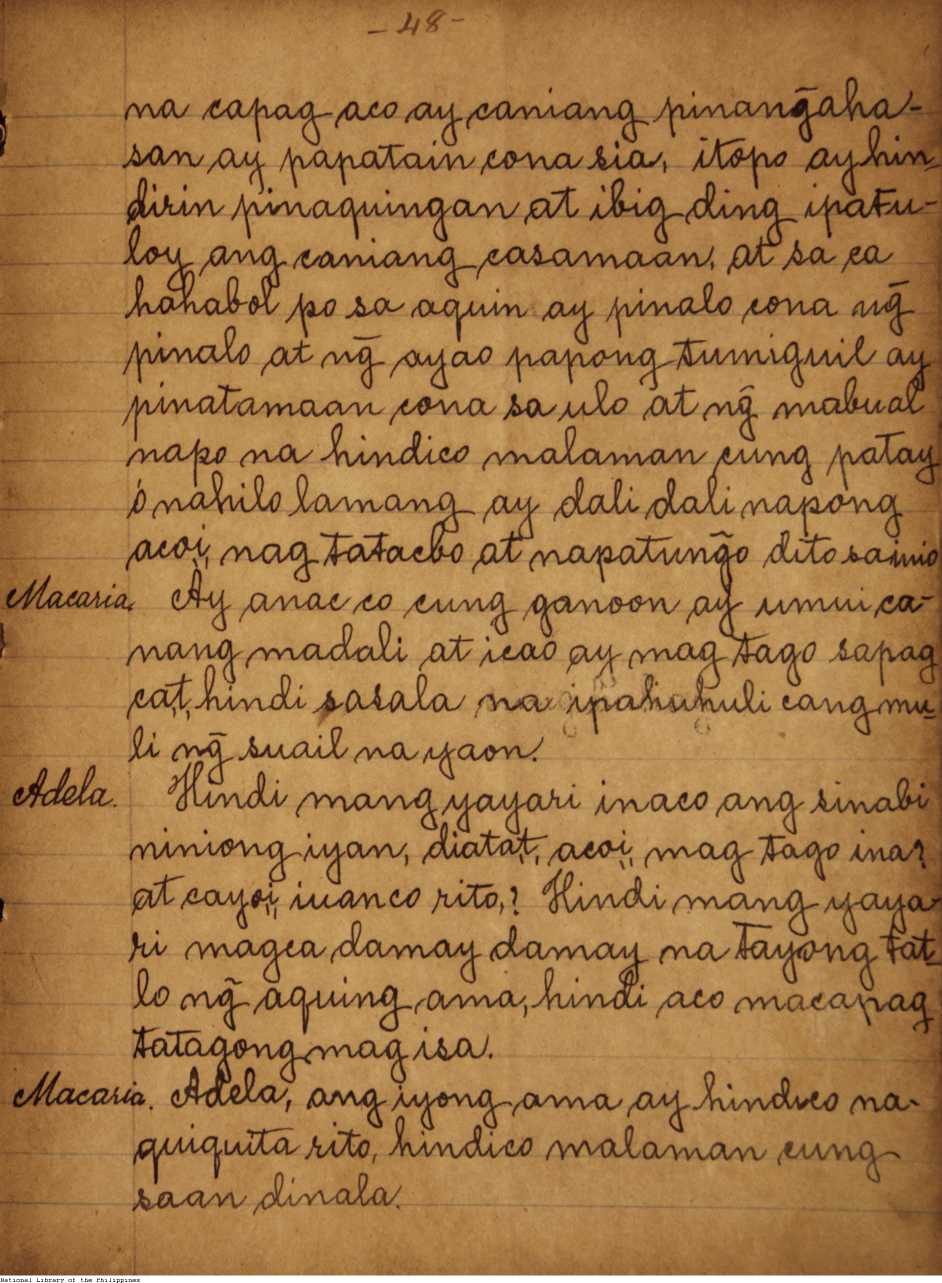 - 48 -
na capag aco ay caniang pinang̃aha-
san ay papatain cona sia, itopo ay hin-
dirin pinaquingan at ibig ding ipatu-
loy ang caniang casamaan, at sa ca
hahabol po sa aquin ay pinalo cona ng̃
pinalo at ng̃ ayao papong tumiguil ay
pinatamaan cona sa ulo at ng̃ mabual
napo na hindico malaman cung patay
ó nahilo lamang ay dali dali napong
acoi, nag tatacbo at napatung̃o dito sa inio
Macaria. Ay anac co cung ganoon ay umui ca-
nang madali at icao ay mag tago sapag
cat, hindi sasala na ipahuhuli cang mu-
li ng̃ suail na yaon.
Adela. Hindi mang yayari inaco ang sinabi
niniong iyan, diatat, acoi, mag tago ina?
at cayoi, iuanco rito,? Hindi mang yaya-
ri magca damay damay na tayong tat-
lo ng̃ aquing ama, hindi aco macapag
tatagong mag isa.
Macaria. Adela, ang iyong ama ay hindico na-
quiquita rito, hindico malaman cung
saan dinala.
National Library of the Philippines